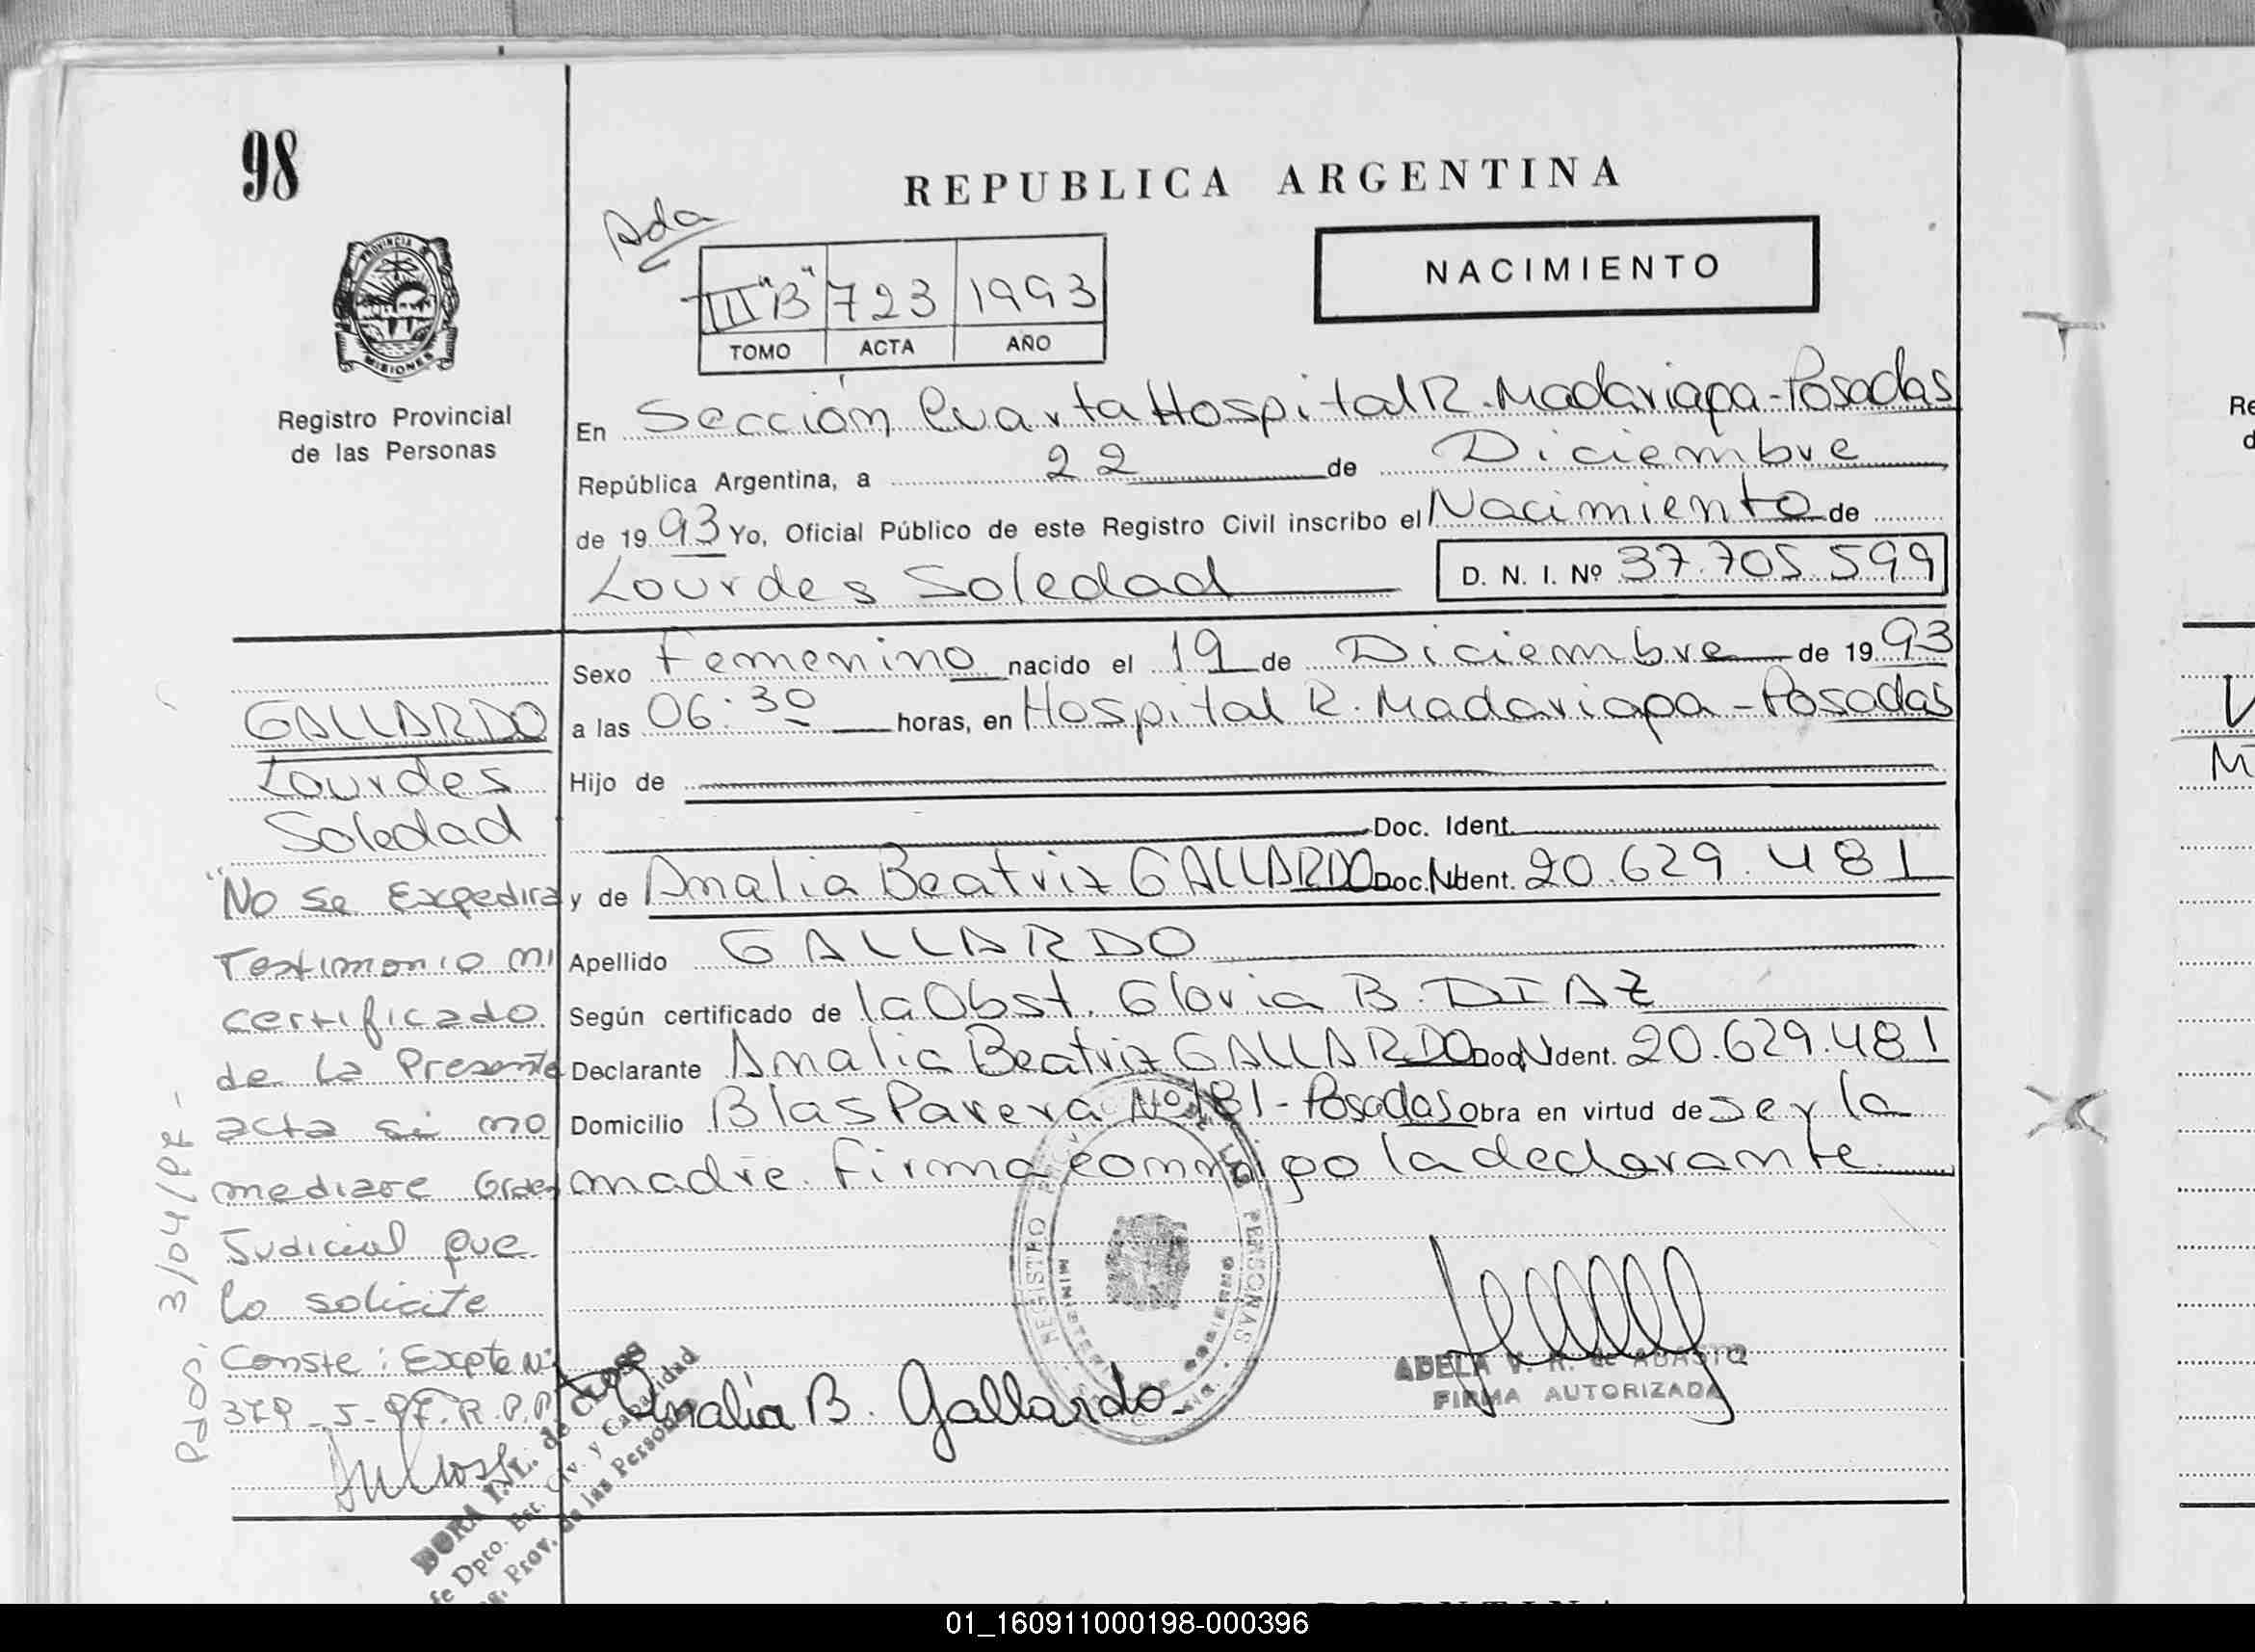 98
REPUBLICA ARGENTINA
Ada
NACIMIENTO
III "B" 723 1993
TOMO ACTA AÑO
PROVINCIA
MISIONES
Registro Provincial
de las Personas
En Sección Cuarta Hospital R. Madariaga - Posadas
República Argentina, a 22 de Diciembre
de 1993 Yo, Oficial Público de este Registro Civil inscribo el Nacimiento de
Lourdes Soledad D. N. I. Nº 37.705.599
Sexo Femenino nacido el 19 de Diciembre de 1993
a las 06:30 horas, en Hospital R. Madariaga - Posadas
Hijo de
Doc. Ident.
y de Amalia Beatriz GALLARDO Doc. Ident. 20.629.481
Apellido GALLARDO
Según certificado de la Obst. Gloria B. DIAZ
Declarante Amalia Beatriz GALLARDO Doc. Ident. 20.629.481
Domicilio Blas Parera Nº 181 - Posadas Obra en virtud de ser la
madre. Firma conmigo la declarante.
GALLARDO
Lourdes
Soledad
"No Se Expedira
Testimonio ni
certificado
de la Presente
acta si no
mediare Orden
Judicial que
lo solicite
Conste: Expte Nº
REGISTRO DE LAS PERSONAS
MINISTERIO DE GOBIERNO
Amalia B. Gallardo
ADELA V. R. de ABASTO
FIRMA AUTORIZADA
DORA L. de
Dpto. Est. Civ. y Capacidad
Prov. de las Personas
Re
01_160911000198-000396